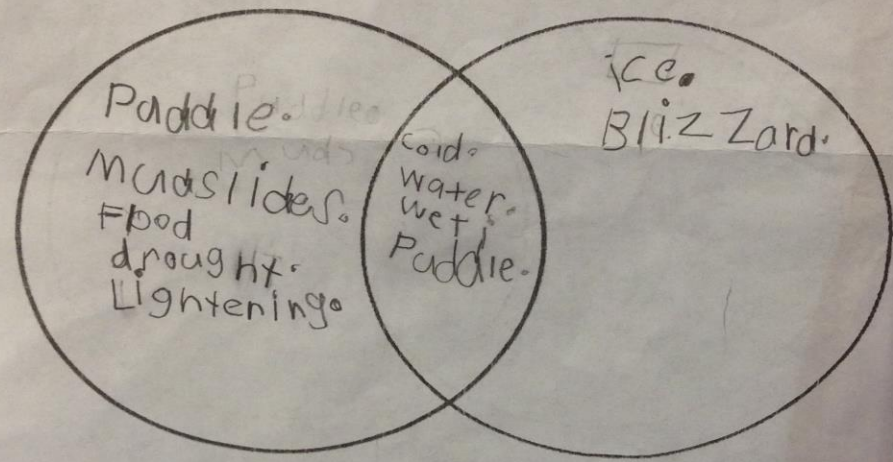 Puddle.
Mudslides.
Flood
drought.
Lightening.
cold.
Water.
Wet.
Puddle.
ice.
Blizzard.